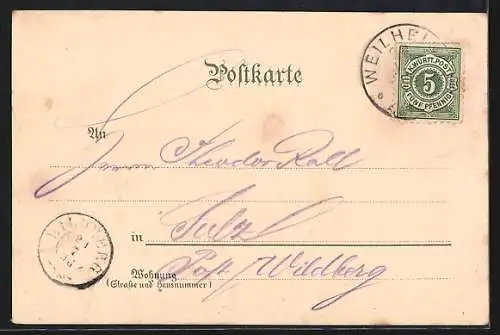 Postkarte
WEILHEI
K. WÜRTT. POST
5
FÜNF PFENNIG
An
Herrn Theodor Roll
in Sulz
Post Wildberg
Wohnung
(Straße und Hausnummer)
WILDBERG